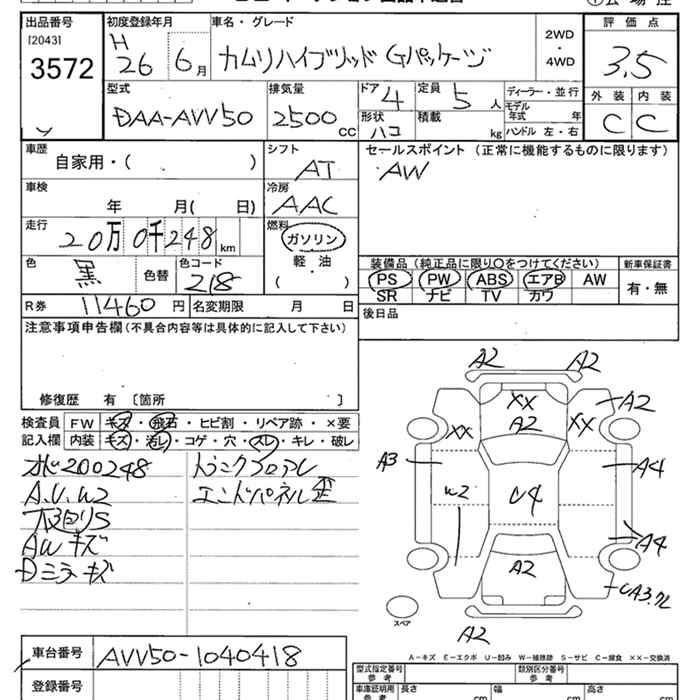 出品番号 初度登録年月 車名・グレード 評価点
[2043] H 2WD
3572 26 6月 カムリハイブリッド Gパッケージ ・ 3.5
4WD
型式 排気量 ドア 4 定員 5人 ディーラー・並行 外装 内装
DAA-AVV50 2500cc 形状 ハコ 積載 kg モデル年式 年 C C
ハンドル 左・右
車歴 シフト セールスポイント (正常に機能するものに限ります)
自家用・( ) AT AW
車検 冷房
年 月( 日) AAC
走行 燃料
20万0千248km ガソリン
色 色コード 軽・油 装備品 (純正品に限り○をつけてください) 新車保証書
黒 色替 218 ( ) PS PW ABS エアB AW 有・無
SR ナビ TV カワ
R券 11460円 名変期限 月 日 後日品
注意事項申告欄(不具合内容等は具体的に記入して下さい)
修復歴 有 〔箇所 〕
検査員 FW キズ・飛石・ヒビ割・リペア跡・×要
記入欄 内装 キズ・汚レ・コゲ・穴・スレ・キレ・破レ
200248 トランクフロアサビ
A.U.W2 エンドパネル歪
AWキズ
Dミラーキズ
A2 A2
XX A2
XX A2 XX
A3 W2 U4 A4
A4
A2
A2
スペア
A-キズ E-エクボ U-凹み W-補修跡 S-サビ C-腐食 ××-交換済
車台番号 AVV50-1040418
登録番号
型式指定番号 参考 類別区分番号 参考
車庫証明用 参考 長さ cm 幅 cm 高さ cm